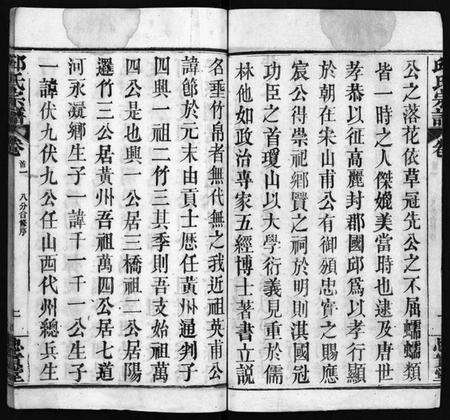 邱氏宗譜
卷
公之落花依草冠先公之不屈蠕蠕類
皆一時之人傑媲美當時也逮及唐世
孝恭以征高麗封郡國邱為以孝行顯
於朝在宋山甫公有御頒忠實之賜應
宸公得崇祀鄉賢之祠於明則淇國冠
功臣之首瓊山以大學衍義見重於儒
林他如政治專家五經博士著書立說
名垂竹帛者無代無之我近祖英甫公
諱節於元末由貢士歷任黃州通判子
四興一祖二竹三其季則吾支始祖萬
四公是也興一公居三橋祖二公居陽
邏竹三公居黃州吾祖萬四公居七道
河永凝鄉生子一諱千一千一公生子
一諱伏九伏九公任山西代州總兵生
邱氏宗譜
卷
首一
八分合修序
忠實堂